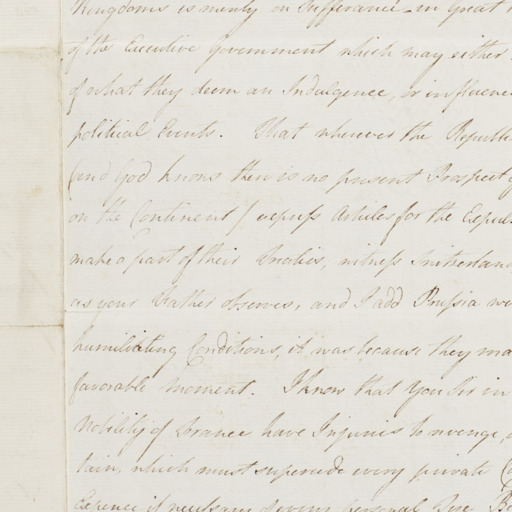 Kingdoms is merely on Sufferance in great
of the Executive Government which may either
of what they deem an Indulgence, or influence
political Events. That wherever the Republic
(and God knows there is no present Prospect
on the Continent) express Articles for the Expuls
make a part of their Treaties, witness Switzerland
as your Father observes, and I add Prussia
humiliating Conditions, it was because they
favorable moment. I know that You Sir in
Nobility of France have Injuries to revenge,
tain, which must supersede every private
Expence if necessary of your personal